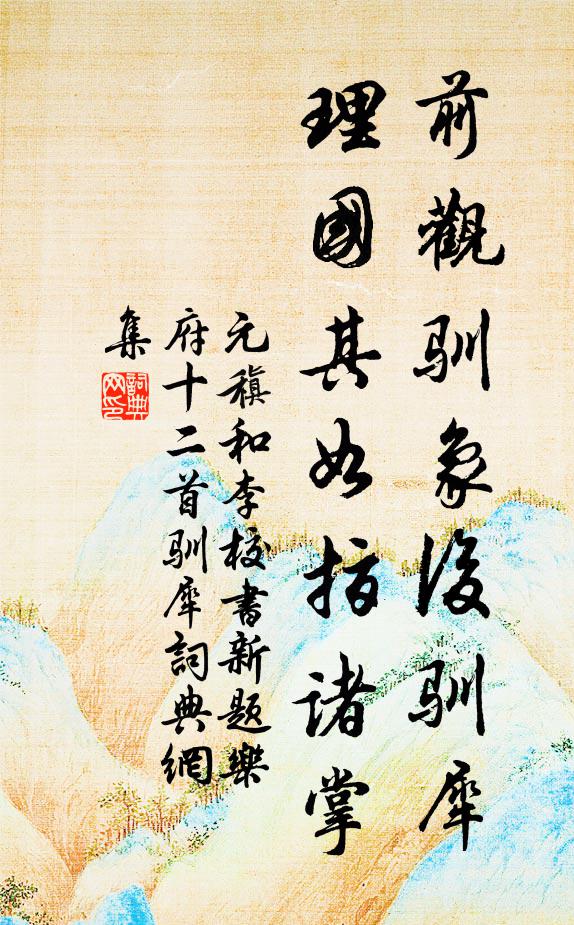 前觀馴象後馴犀
理國其如指諸掌
元稹和李校書新題樂
府十二首馴犀詞典網
集
詞典網印